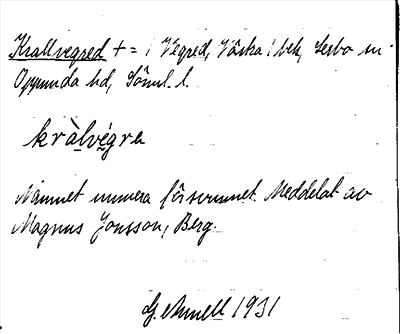 Krallvegred + = i Vegred, Västra i bek, Lerbo sn
Oppunda hd, Söml. l.
kràlvégre
Namnet numera försvunnet. Meddelat av
Magnus Jonsson, Berg.
G. Arnell 1931